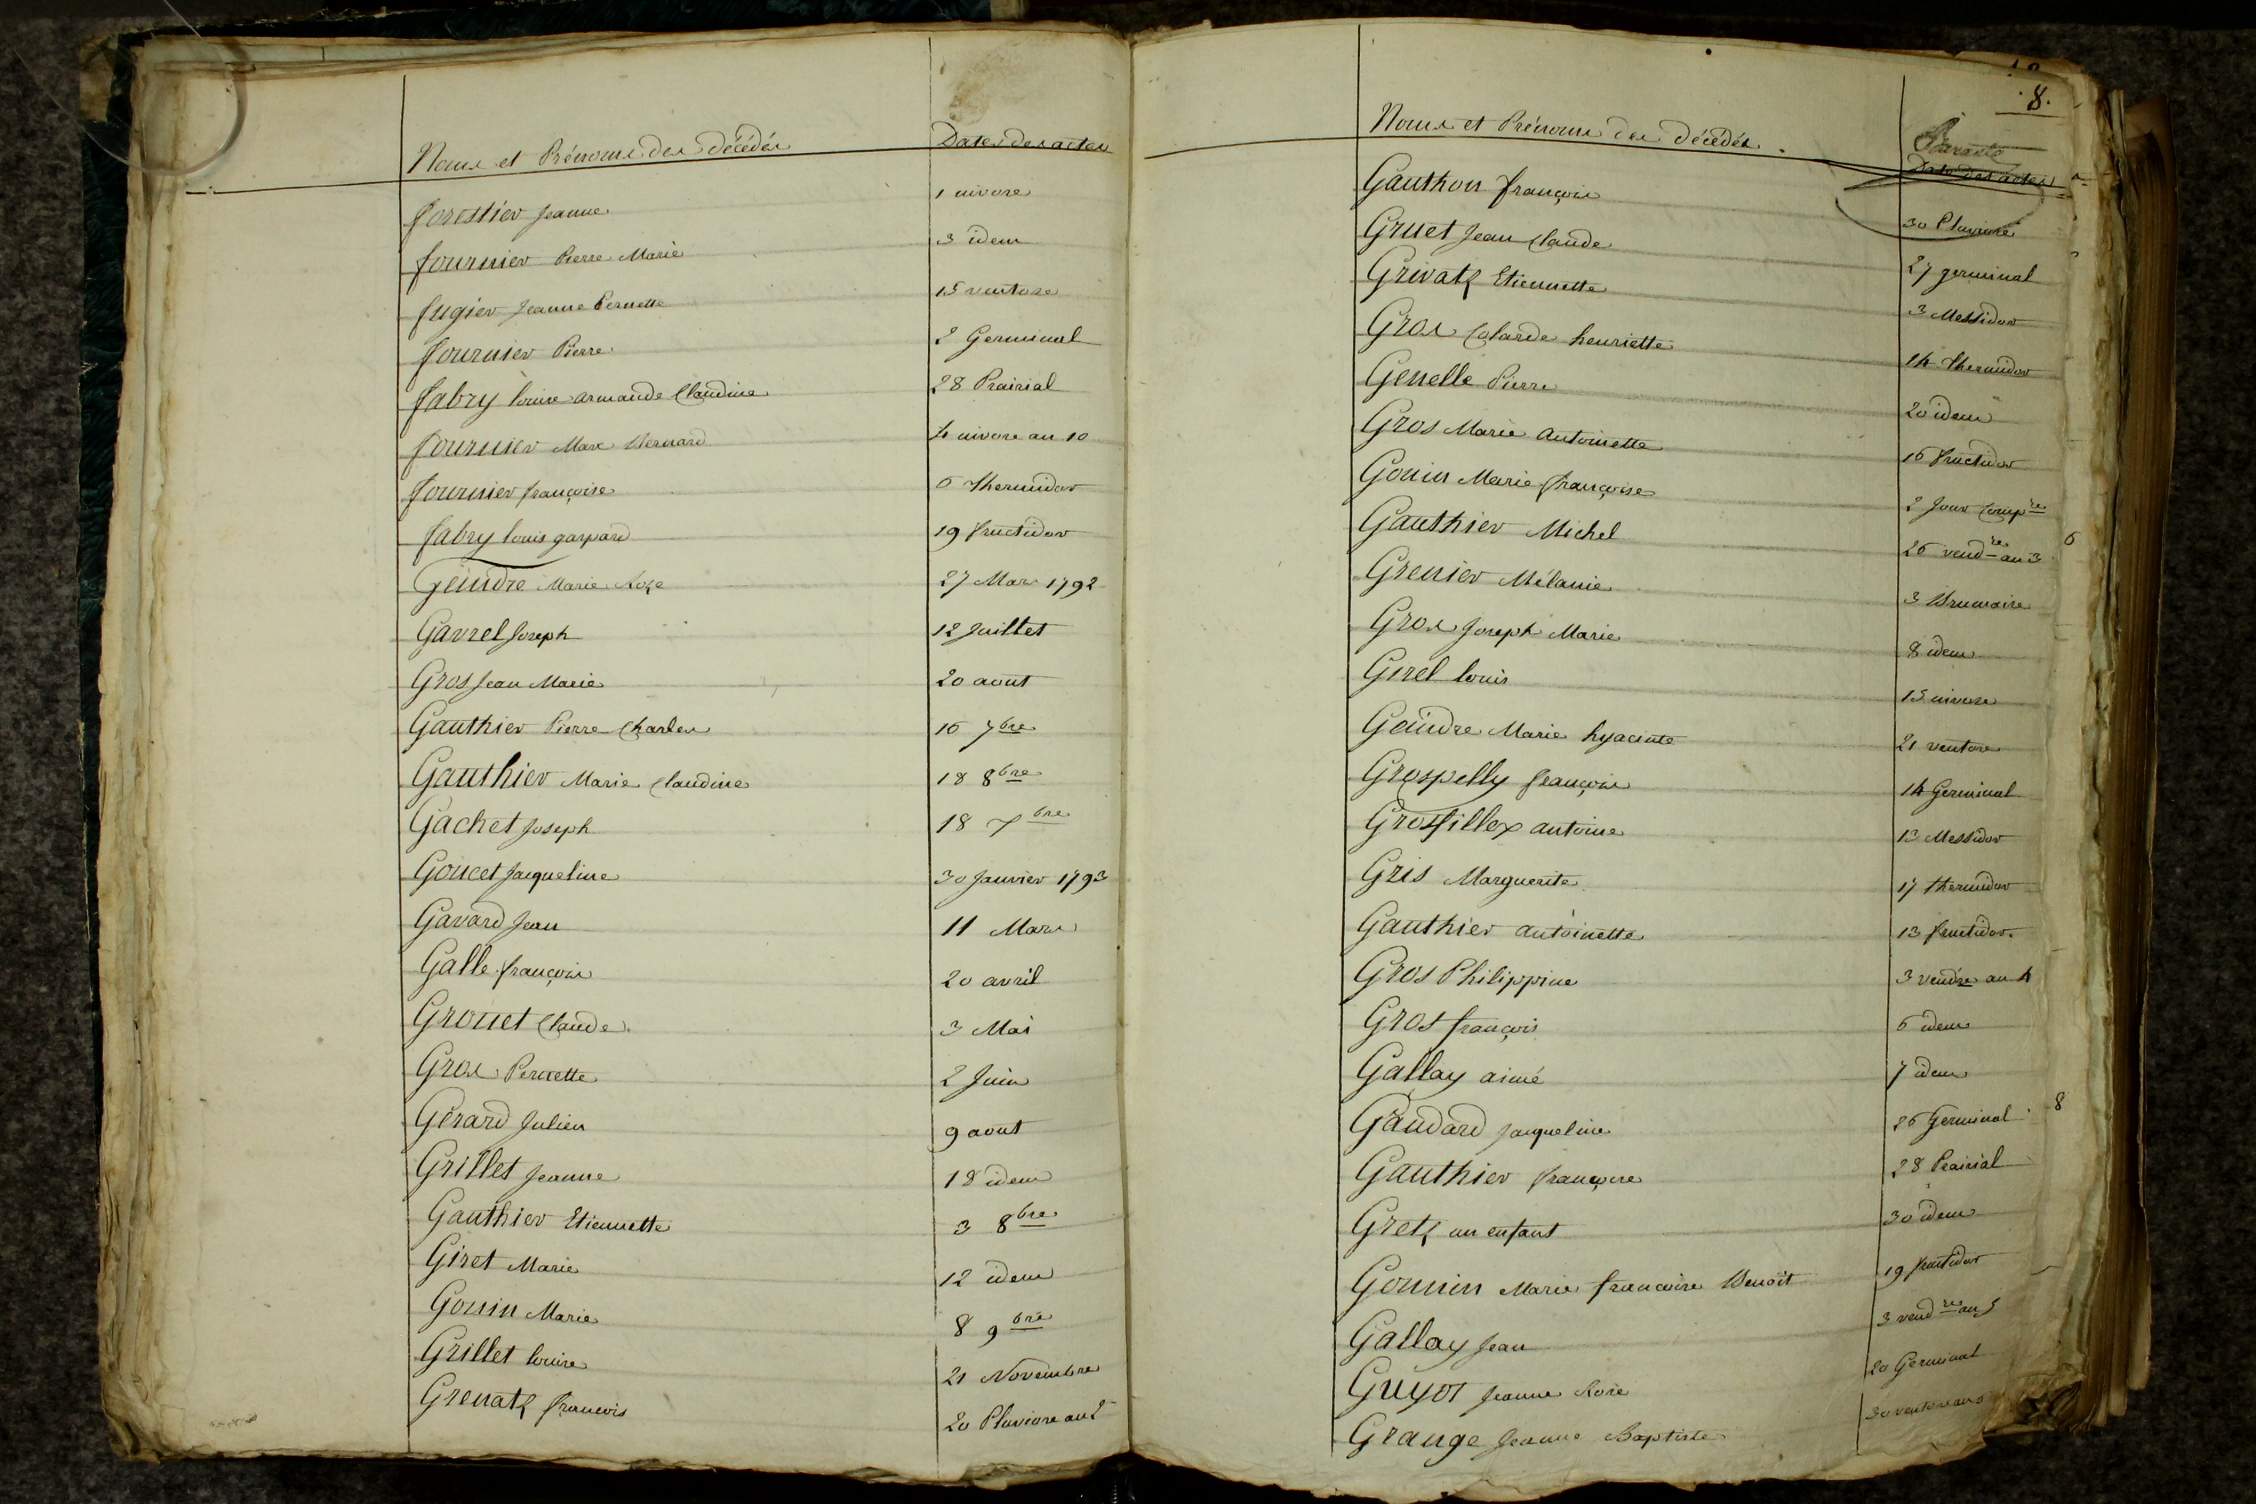 Noms et Prénoms des décédés Dates des actes
forestier Jeanne 1 nivose
fournier Pierre Marie 3 idem
fugier Jeanne Pernette 15 ventose
fournier Pierre 2 Germinal
fabry louise armande Claudine 28 Prairial
fournier Marc Bernard 4 nivose an 10
fournier françoise 6 thermidor
fabry louis gaspard 19 fructidor
Geindre Marie Roze 27 Mars 1792
Gavrel Joseph 12 Juillet
Gros Jean Marie 20 aout
Gauthier Pierre Charles 16 7bre
Gauthier Marie Claudine 18 8bre
Gachet Joseph 18 Xbre
Goncet Jacqueline 30 Janvier 1793
Gavard Jean 11 Mars
Galle françois 20 avril
Grouet Claude 3 Mai
Gros Pernette 2 Juin
Gérard Julien 9 aout
Grillet Jeanne 18 idem
Gauthier Etiennette 3 8bre
Giret Marie 12 idem
Gouin Marie 8 9bre
Grillet louise 21 Novembre
Grenatz françois 20 Pluviose an 2
8.
Noms et Prénoms des décédés. Date des actes
Gauthon françois 30 Pluviose
Gruet Jean Claude 27 germinal
Grivatz Etiennette 3 Messidor
Gros Colarde henriette 14 thermidor
Genelle Pierre 20 idem
Gros Marie antoinette 16 fructidor
Gouin Marie françoise 2 Jour Compre
Gauthier Michel 26 vendre an 3
Grenier Mélanie 3 Brumaire
Gros Joseph Marie 8 idem
Girel louis 15 nivose
Geindre Marie hyacinte 21 ventose
Grospelly françois 14 Germinal
Grosfillex antoine 13 Messidor
Gris Marguerite 17 thermidor
Gauthier antoinette 13 fructidor
Gros Philippine 3 vendre an 4
Gros françois 6 idem
Gallay aimé 7 idem
Gaudard Jacqueline 26 Germinal
Gauthier françoise 28 Prairial
Gretz un enfant 30 idem
Gounin Marie françoise Benoit 19 fructidor
Gallay Jean 3 vendre an 5
Guyot Jeanne Rose 20 Germinal
Grange Jeanne Baptiste 30 ventose an 6